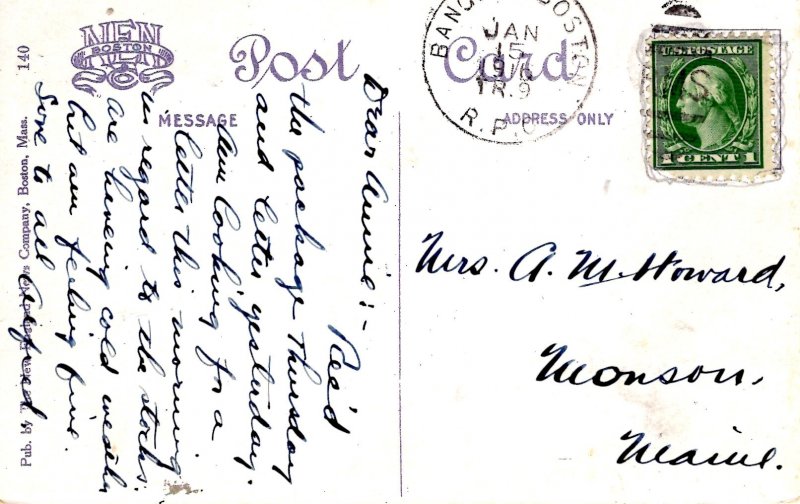 140
NEN
BOSTON
Co
Post Card
MESSAGE
ADDRESS ONLY
Pub. by The New England News Company, Boston, Mass.
BANGOR BOSTON
JAN
15
191
TR 9
R.P.O.
U.S. POSTAGE
1 CENT 1
Dear Annie:-
Rec'd
the package Thursday
and letter yesterday.
Am looking for a
letter this morning
in regard to the stocks.
are having cold weather
but am feeling fine.
Love to all
Mrs. A. M. Howard,
Monson.
Maine.